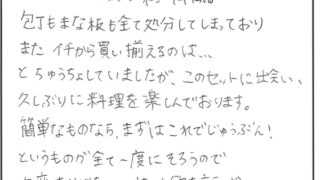 包丁もまな板も全て処分してしまっており
また イチから買い揃えるのは、、、
とちゅうちょしていましたが、このセットに出会い、
久しぶりに料理を楽しんでおります。
簡単なものなら、まずはこれでじゅうぶん!
というものが全て一度にそろうので